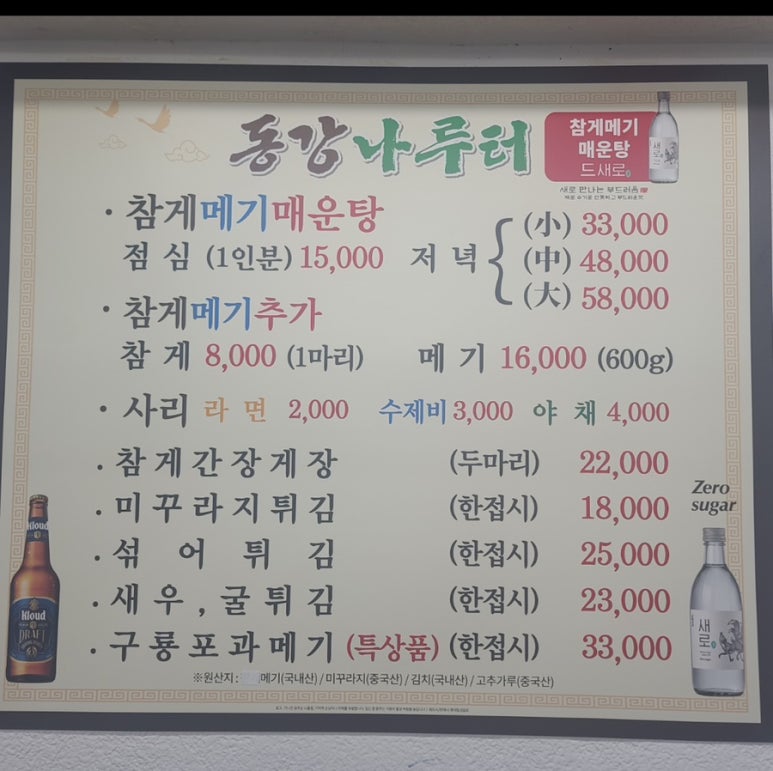 동강나루터
참게메기
매운탕
드새로
새로 만나는 부드러움
· 참게메기매운탕
점심 (1인분) 15,000 저녁 { (小) 33,000
(中) 48,000
(大) 58,000
· 참게메기추가
참게 8,000 (1마리) 메기 16,000 (600g)
· 사리 라면 2,000 수제비 3,000 야채 4,000
· 참게간장게장 (두마리) 22,000
· 미꾸라지튀김 (한접시) 18,000
· 섞어튀김 (한접시) 25,000
· 새우,굴튀김 (한접시) 23,000
· 구룡포과메기 (특상품) (한접시) 33,000
※원산지 : 메기(국내산) / 미꾸라지(중국산) / 김치(국내산) / 고추가루(중국산)
Kloud
Kloud
DRAFT
Zero
sugar
새로